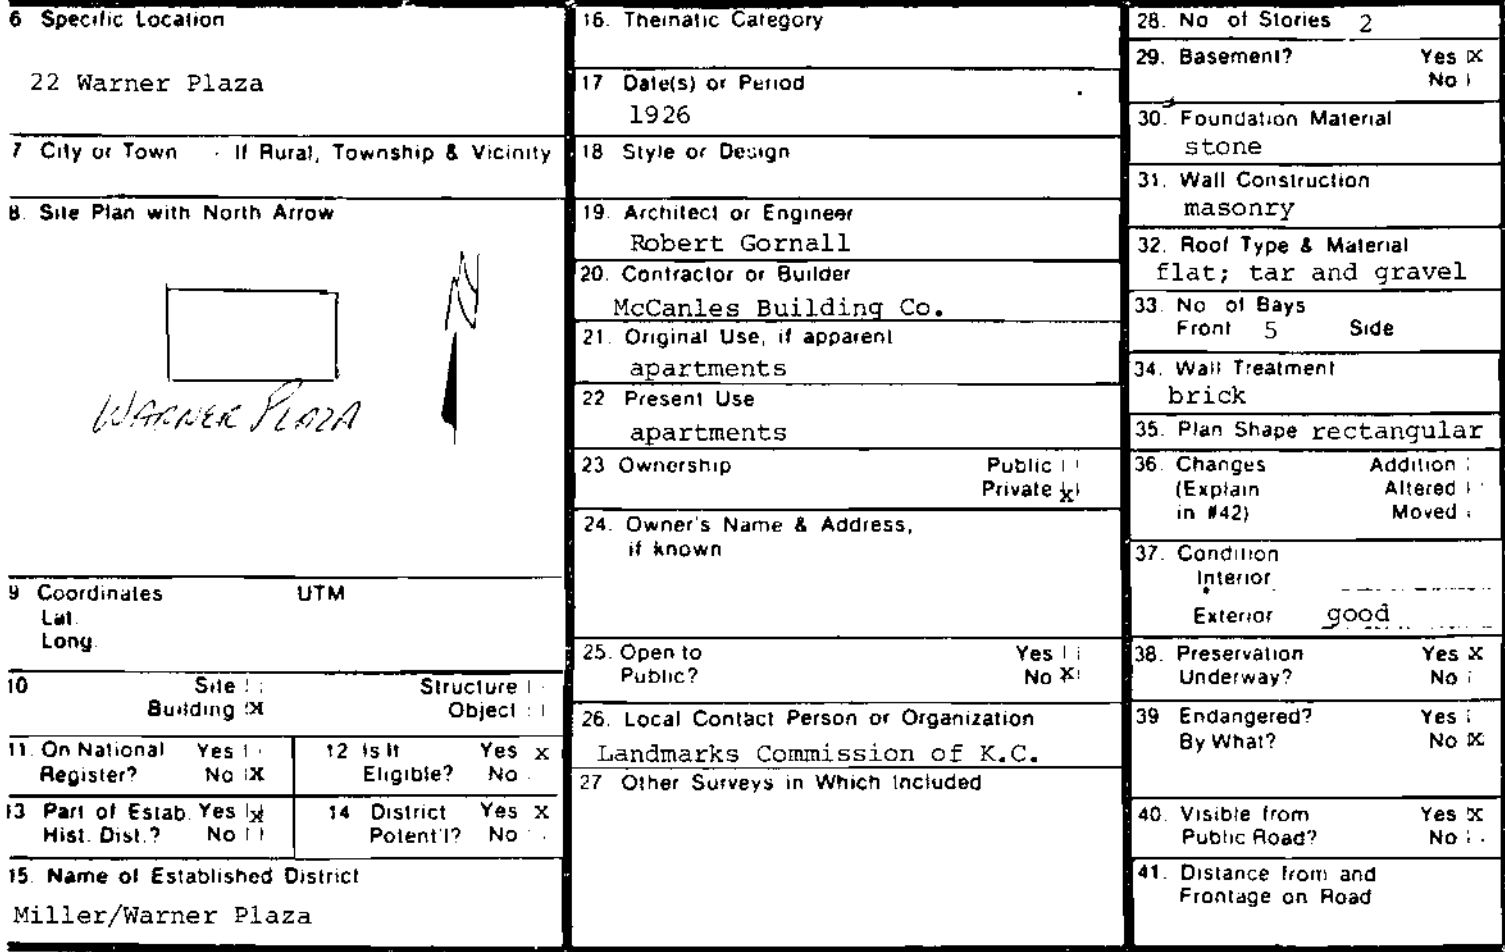 6 Specific Location
22 Warner Plaza
7 City or Town - If Rural, Township & Vicinity
8. Site Plan with North Arrow
N
WARNER PLAZA
9 Coordinates UTM
Lat.
Long.
10 Site Structure
Building X Object
11. On National Yes 12 Is It Yes x
Register? No X Eligible? No
13 Part of Estab. Yes x 14 District Yes X
Hist. Dist.? No Potent'l? No
15. Name of Established District
Miller/Warner Plaza
16. Thematic Category
17 Date(s) or Period
1926
18 Style or Design
19. Architect or Engineer
Robert Gornall
20. Contractor or Builder
McCanles Building Co.
21. Original Use, if apparent
apartments
22 Present Use
apartments
23 Ownership Public
Private x
24. Owner's Name & Address,
if known
25. Open to Yes
Public? No X
26. Local Contact Person or Organization
Landmarks Commission of K.C.
27 Other Surveys in Which Included
28. No of Stories 2
29. Basement? Yes X
No
30. Foundation Material
stone
31. Wall Construction
masonry
32. Roof Type & Material
flat; tar and gravel
33. No of Bays
Front 5 Side
34. Wall Treatment
brick
35. Plan Shape rectangular
36. Changes Addition
(Explain Altered
in #42) Moved
37. Condition
Interior
Exterior good
38. Preservation Yes X
Underway? No
39 Endangered? Yes
By What? No X
40. Visible from Yes X
Public Road? No
41. Distance from and
Frontage on Road